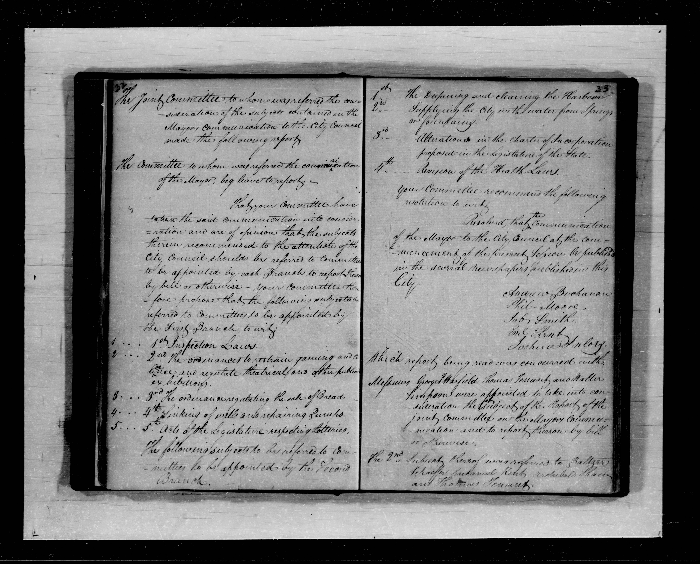 The Joint Committee to whom was referred the con-
-sideration of the subjects contained in the
Mayors Communication to the City Council
made the following report
The Committee to whom was referred the communication
of the Mayor, beg leave to report
That your Committee have
taken the said communication into consider-
-ation and are of opinion that the subjects
therein recommended to the attention of the
City Council should be referred to Committees
to be appointed by each Branch to report thereon
by bill or otherwise - your Committee there-
fore propose that the following subjects be
referred to Committees to be appointed by
the First Branch to wit
1 1st Inspection Laws
2 2nd The ordinances to restrain gaming and
and regulate theatrical and other public
exhibitions
3 3rd The ordinance regulating the sale of Bread
4 4th Sinking of wells and repairing Pumps
5 5th Acts of the Legislature respecting Lotteries.
The following subjects to be referred to Com-
-mittees to be appointed by the Second
Branch
23
1st The Deepening and cleaning the Harbour
2nd Supplying the City with water from Springs
or fountains
3rd Alterations in the charter of Incorporation
proposed in the Legislature of the State.
4th division of the Health Laws
Your Committee recommend the following
resolution to wit,
Resolved, that the Communication
of the Mayor to the City Council at the com-
-mencement of the present Session be published
in the several Newspapers published in this
City
Andrew Buchanan
Phil. Moore
Job Smith
Which report being read was concurred in &
Messieurs George Warfield Thomas and Walter
Simpson were appointed to take into con-
sideration the Subject of the Report of the
joint Committee on the Mayors Commu-
nication and to report thereon by bill
or otherwise.
The 2nd Subject thereof was referred to Baltzer
and Thomas